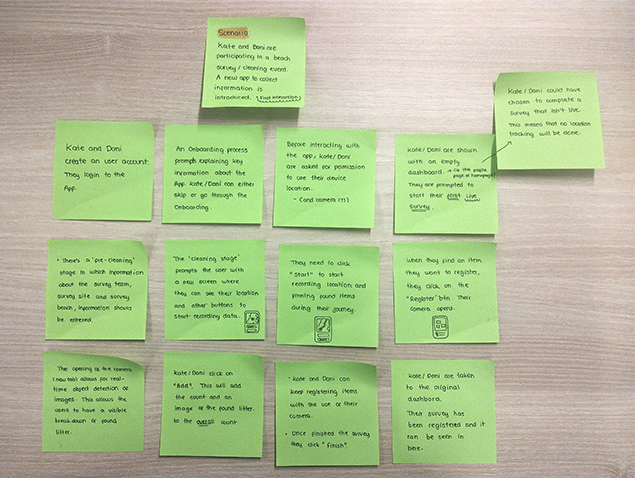 Scenario
Kate and Dani are
participating in a beach
survey / cleaning event.
A new app to collect
information is
introduced. *First interaction
Kate / Dani could have
chosen to complete a
survey that isn't live.
This means that no location
tracking will be done.
Kate and Dani
create an user account.
They login to the
App.
An Onboarding process
prompts explaining key
information about the
App. Kate / Dani can either
skip or go through the
Onboarding.
Before interacting with
the app, Kate / Dani
are asked for permission
to use their device
location.
- (and camera (?))
Kate / Dani are shown
with an empty
dashboard. → Or the profile
page or homepage?
They are prompted to
start their first live
survey.
• There's a 'pre-cleaning'
stage in which information
about the survey team,
survey site and survey
beach, information should
be entered.
The 'cleaning stage'
prompts the user with
a new screen where
they can see their location
and other buttons to
start recording data.
They need to click
"Start" to start
recording location and
pinning found items
during their journey.
When they find an item
they want to register,
they click on the
"Register" btn. Their
camera opens.
The opening of the camera
(new tab) allows for real-
time object detection of
images. This allows the
users to have a visible
breakdown of found
litter.
Kate / Dani click on
"Add". This will add
the count and an
image of the found litter.
to the overall count
• Kate and Dani can
keep registering items
with the use of their
camera.
• Once finished the survey
they click "finish".
Kate / Dani are taken
to the original
dashboard.
Their survey has
been registered and it
can be seen in
here.